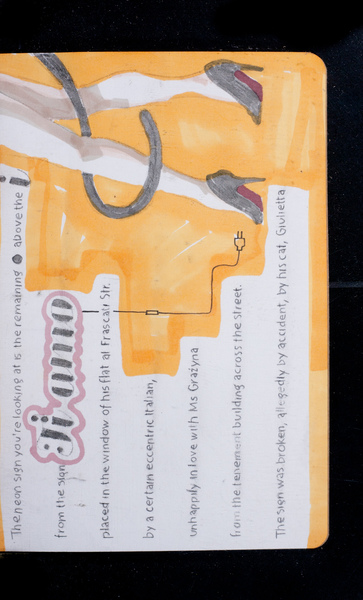 The neon sign you're looking at is the remaining ● above the i
from the sign Ti amo
placed in the window of his flat at Frascati Str.
by a certain eccentric Italian,
unhappily in love with Ms Grażyna
from the tenement building across the street.
The sign was broken, allegedly by accident, by his cat, Giulietta